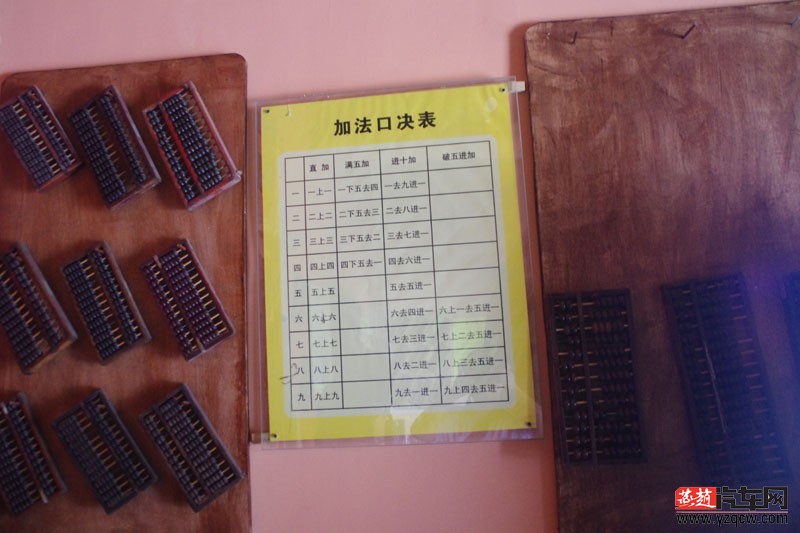 加法口决表
直加 满五加 进十加 破五进加
一 一上一 一下五去四 一去九进一
二 二上二 二下五去三 二去八进一
三 三上三 三下五去二 三去七进一
四 四上四 四下五去一 四去六进一
五 五上五 五去五进一
六 六上六 六去四进一 六上一去五进一
七 七上七 七去三进一 七上二去五进一
八 八上八 八去二进一 八上三去五进一
九 九上九 九去一进一 九上四去五进一
燕赵汽车网
www.yzqcw.com